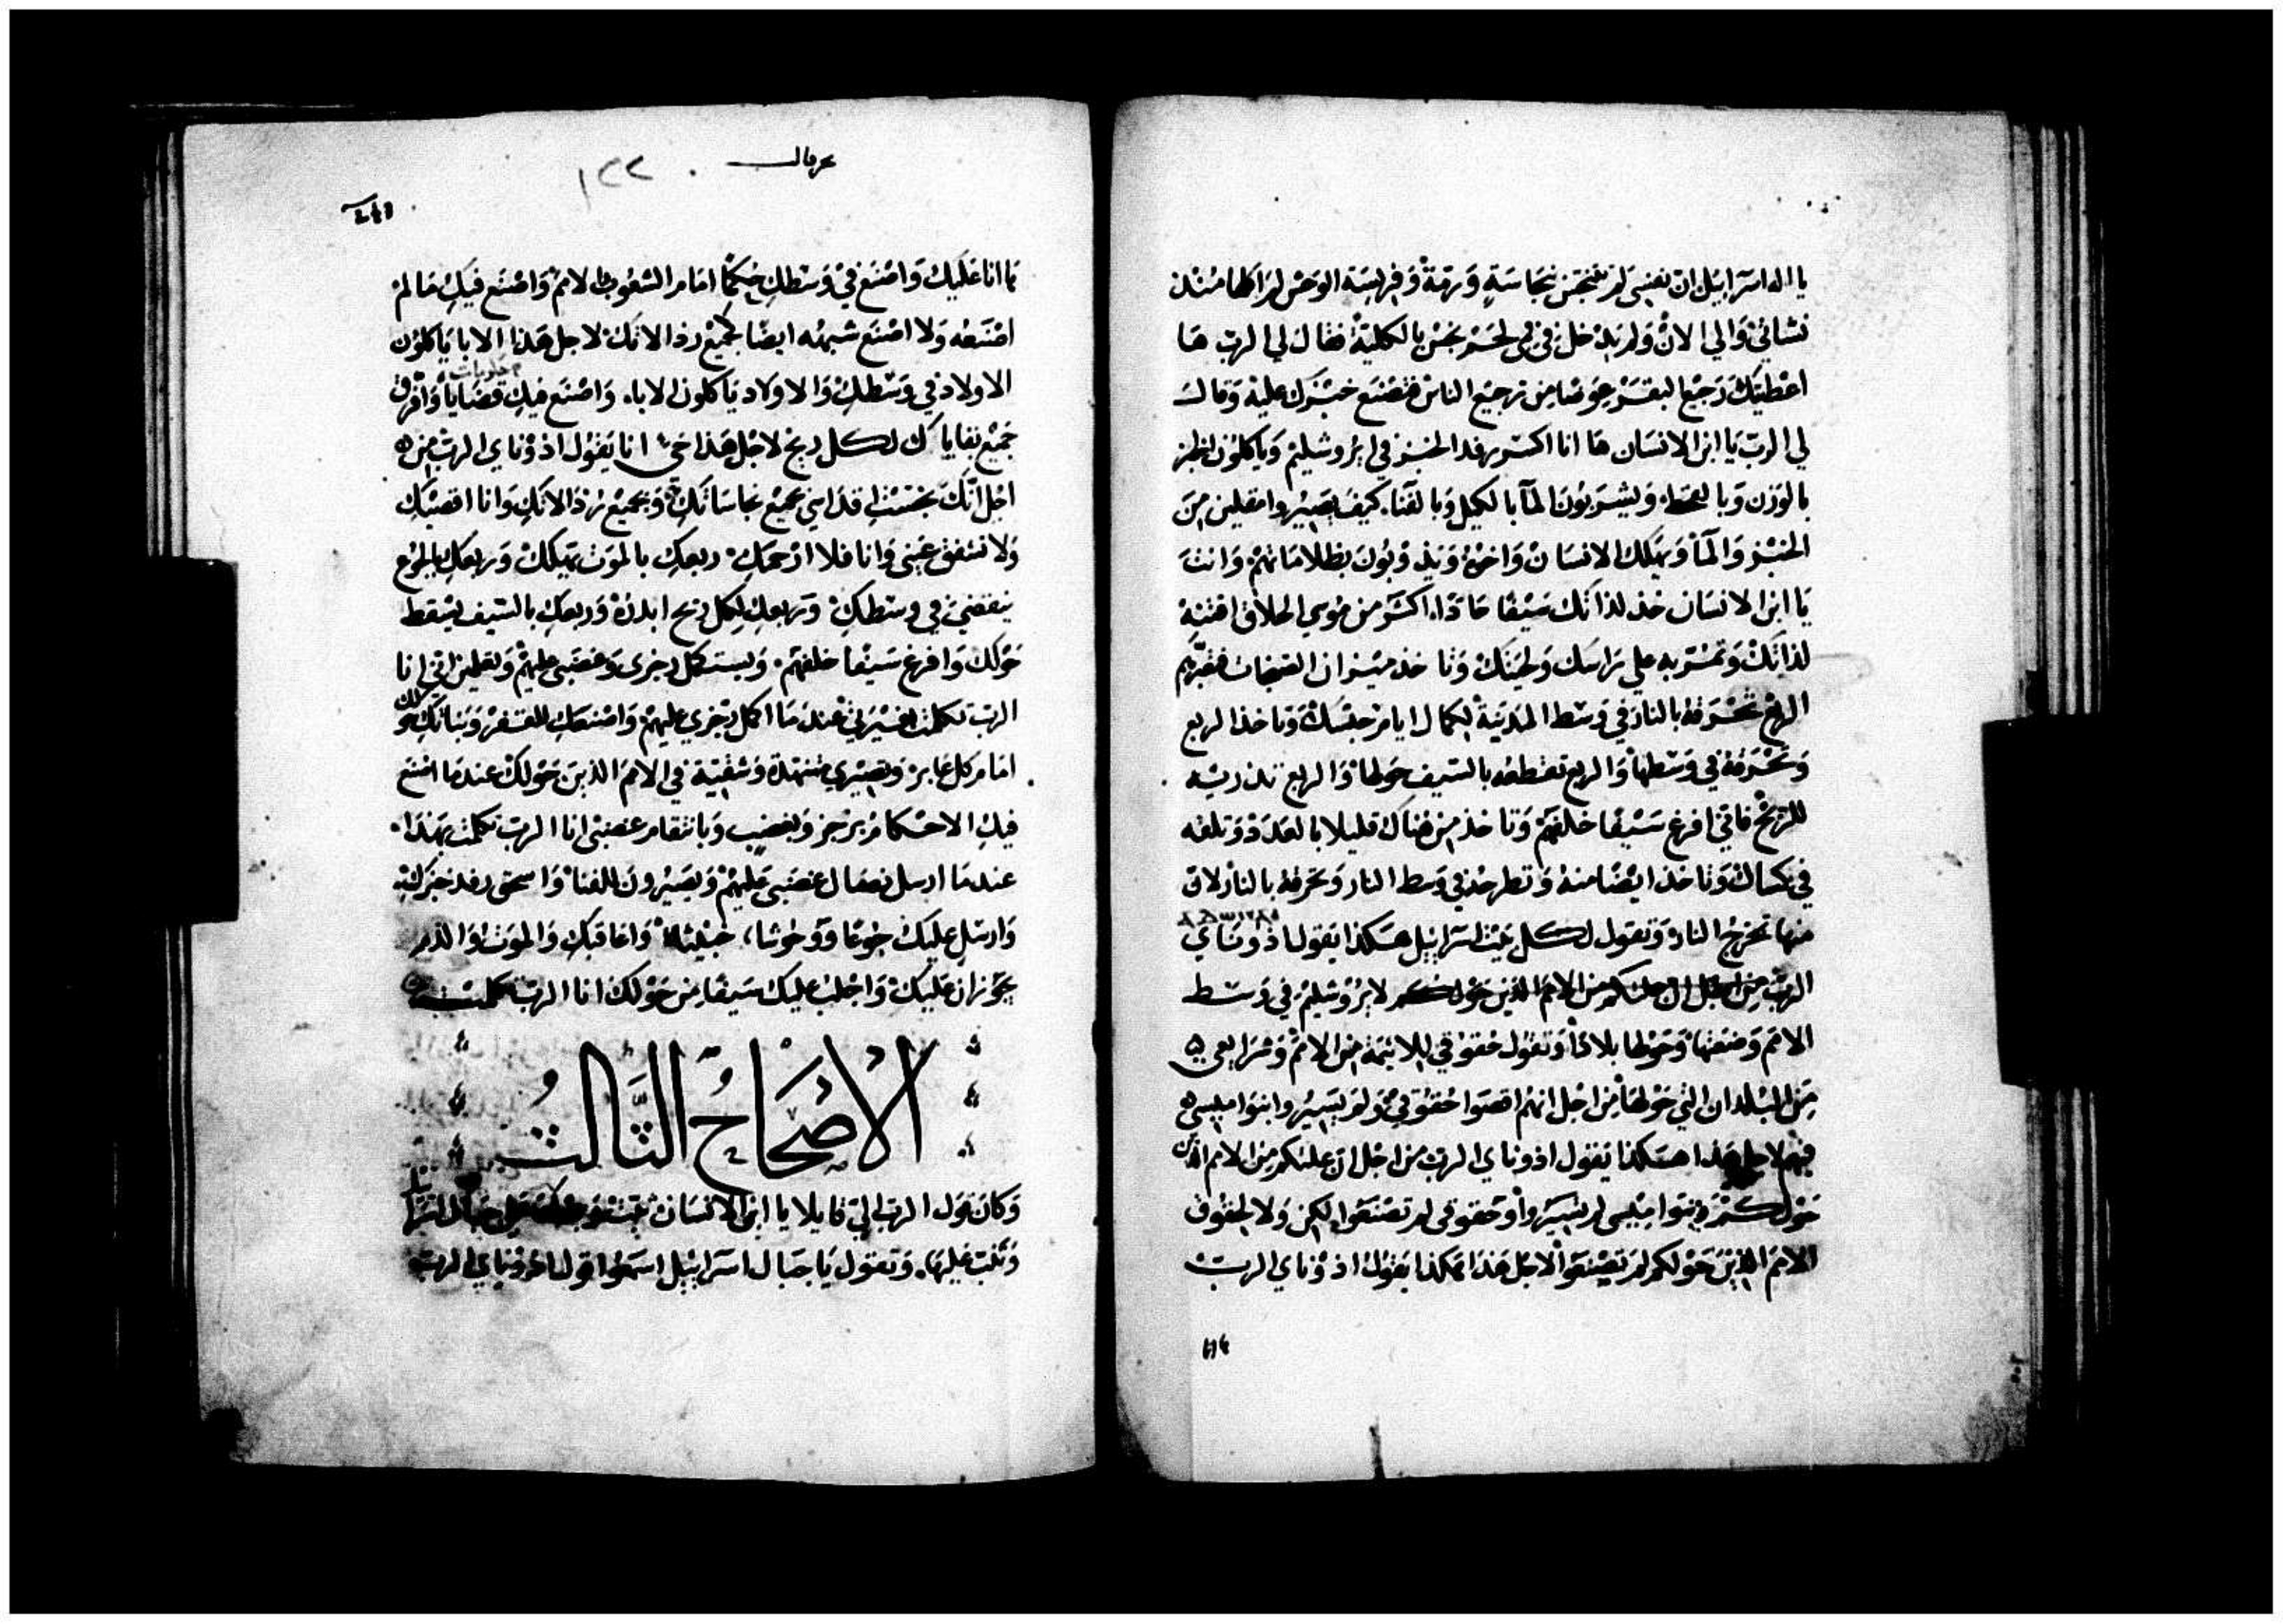 يا اله اسرايل ان نفسي لم تتنجس بنجاسة ورمة وفريسة الوحش لم اكلها منذ
نشاتي والي الان ولم يدخل في في لحم نجس بالكلية فقال لي الرب ها
اعطيتك رجيع البقر عوضا من رجيع الناس فتصنع خبزك عليه وقال
لي الرب يا ابن الانسان ها انا اكسر رفد الخبز في ايروشليم وياكلون الخبز
بالوزن وبا ويشربون المآ بالكيل وبالفنا كيف يصيروا مقلين من
الخبز والمآ ويهلك الانسان واخوه ويذوبون بظلاماتهم وانت
يا ابن الانسان خذ لذاتك سيفا حادا اكثر من موسي الحلاق اقتنه
لذاتك وتمر به علي راسك ولحيتك وتاخذ ميزان
الربع تحرقه بالنار في وسط المدينة لكمال ايام حبسك وتاخذ الربع
وتحرقه في وسطها والربع تقطعه بالسيف حولها والربع تذريه
للريح فاني افرغ سيفا خلفهم وتاخذ من هناك قليلا بالعدد وتلفه
في كساك وتاخذ ايضا منه وتطرحه في وسط النار وتحرقه بالنار لان
منها تخرج النار وتقول لكل بيت اسرايل هكذا يقول اذوناي
الرب من اجل ان من الامم الذين حولكم لايروشليم في وسط
الامم وضعتها وحولها بلادا وتقول حقوقي للايمة من الامم وشرايعي
من البلدان التي حولها من اجل انهم اقصوا حقوقي ولم يسيروا بنواميسي
فيهم لاجل هذا هكذا يقول اذوناي الرب من اجل ان من الامم الذين
حولكم وبنواميسي لم تسيروا وحقوقي لم تصنعوا لكن ولا كحقوق
الامم الذين حولكم لم تصنعوا لاجل هذا هكذا يقول اذوناي الرب
حزقيال
١٢٢
ها انا عليك واصنع في وسطك حكما امام الشعوب والامم واصنع فيك ما لم
اصنعه ولا اصنع شبهه ايضا لجميع رذالاتك لاجل هذا الابا ياكلون
الاولاد في وسطك والاولاد ياكلون الاباء واصنع فيك قضايا وافرق
جميع بقاياك لكل ريح لاجل هذا حي انا يقول اذوناي الرب من
اجل انك نجستي قداسي بجميع نجاساتك وبجميع رذالاتك وانا اقصيك
ولا تشفق عيني وانا فلا ارحمك ربعك بالموت يهلك وربعك بالجوع
ينقضي في وسطك وربعك لكل ريح ابدده وربعك بالسيف يسقط
حولك وافرغ سيفا خلفهم ويستكمل رجزي وغضبي عليهم وتعلمين اني انا
الرب تكلمت بغيرتي عندما اكمل رجزي عليهم واصنعك للقفر وبناتك حولك
امام كل عابر وتصيري متنهدة وشقية في الامم الذين حولك عندما اصنع
فيك الاحكام برجز وبغضب وبانتقام غضبي انا الرب تكلمت بهذا
عندما ارسل نصال غضبي عليهم ويصيرون للفنا واسحق رفد خبزك
وارسل عليك جوعا ووحوشا خبيثا واعاقبك والموت والدم
يجوزان عليك واجلب عليك سيفا من حولك انا الرب تكلمت
الاصحاح الثالث
وكان قول الرب الي قايلا يا ابن الانسان ثبت وجهك علي جبال اسرايل
وتنب عليها وتقول يا جبال اسرايل اسمعوا قول اذوناي الرب